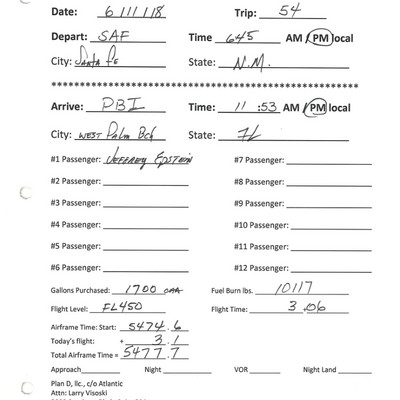 Date: 6/11/18 Trip: 54
Depart: SAF Time 645 AM /PM local
City: Santa Fe State: N.M.
************************************************
Arrive: PBI Time: 11 :53 AM /PM local
City: WEST Palm Bch State: FL
#1 Passenger: Jeffrey Epstein #7 Passenger:
#2 Passenger: #8 Passenger:
#3 Passenger: #9 Passenger:
#4 Passenger: #10 Passenger:
#5 Passenger: #11 Passenger:
#6 Passenger: #12 Passenger:
Gallons Purchased: 1700 Fuel Burn lbs. 10117
Flight Level: FL450 Flight Time: 3.06
Airframe Time: Start: 5474.6
Today's flight: + 3.1
Total Airframe Time = 5477.7
Approach Night VOR Night Land
Plan D, llc., c/o Atlantic
Attn: Larry Visoski